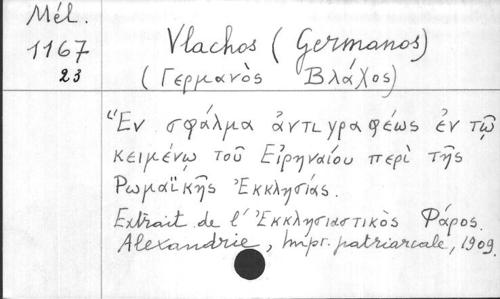 Mél.
1167
23
Vlachos (Germanos)
(Γερμανὸς Βλάχος)
"Εν σφάλμα ἀντιγραφέως ἐν τῷ
κειμένῳ τοῦ Εἰρηναίου περὶ τῆς
Ρωμαϊκῆς Ἐκκλησίας.
Extrait de l' Ἐκκλησιαστικὸς Φάρος.
Alexandrie, Impr. patriarcale, 1909.